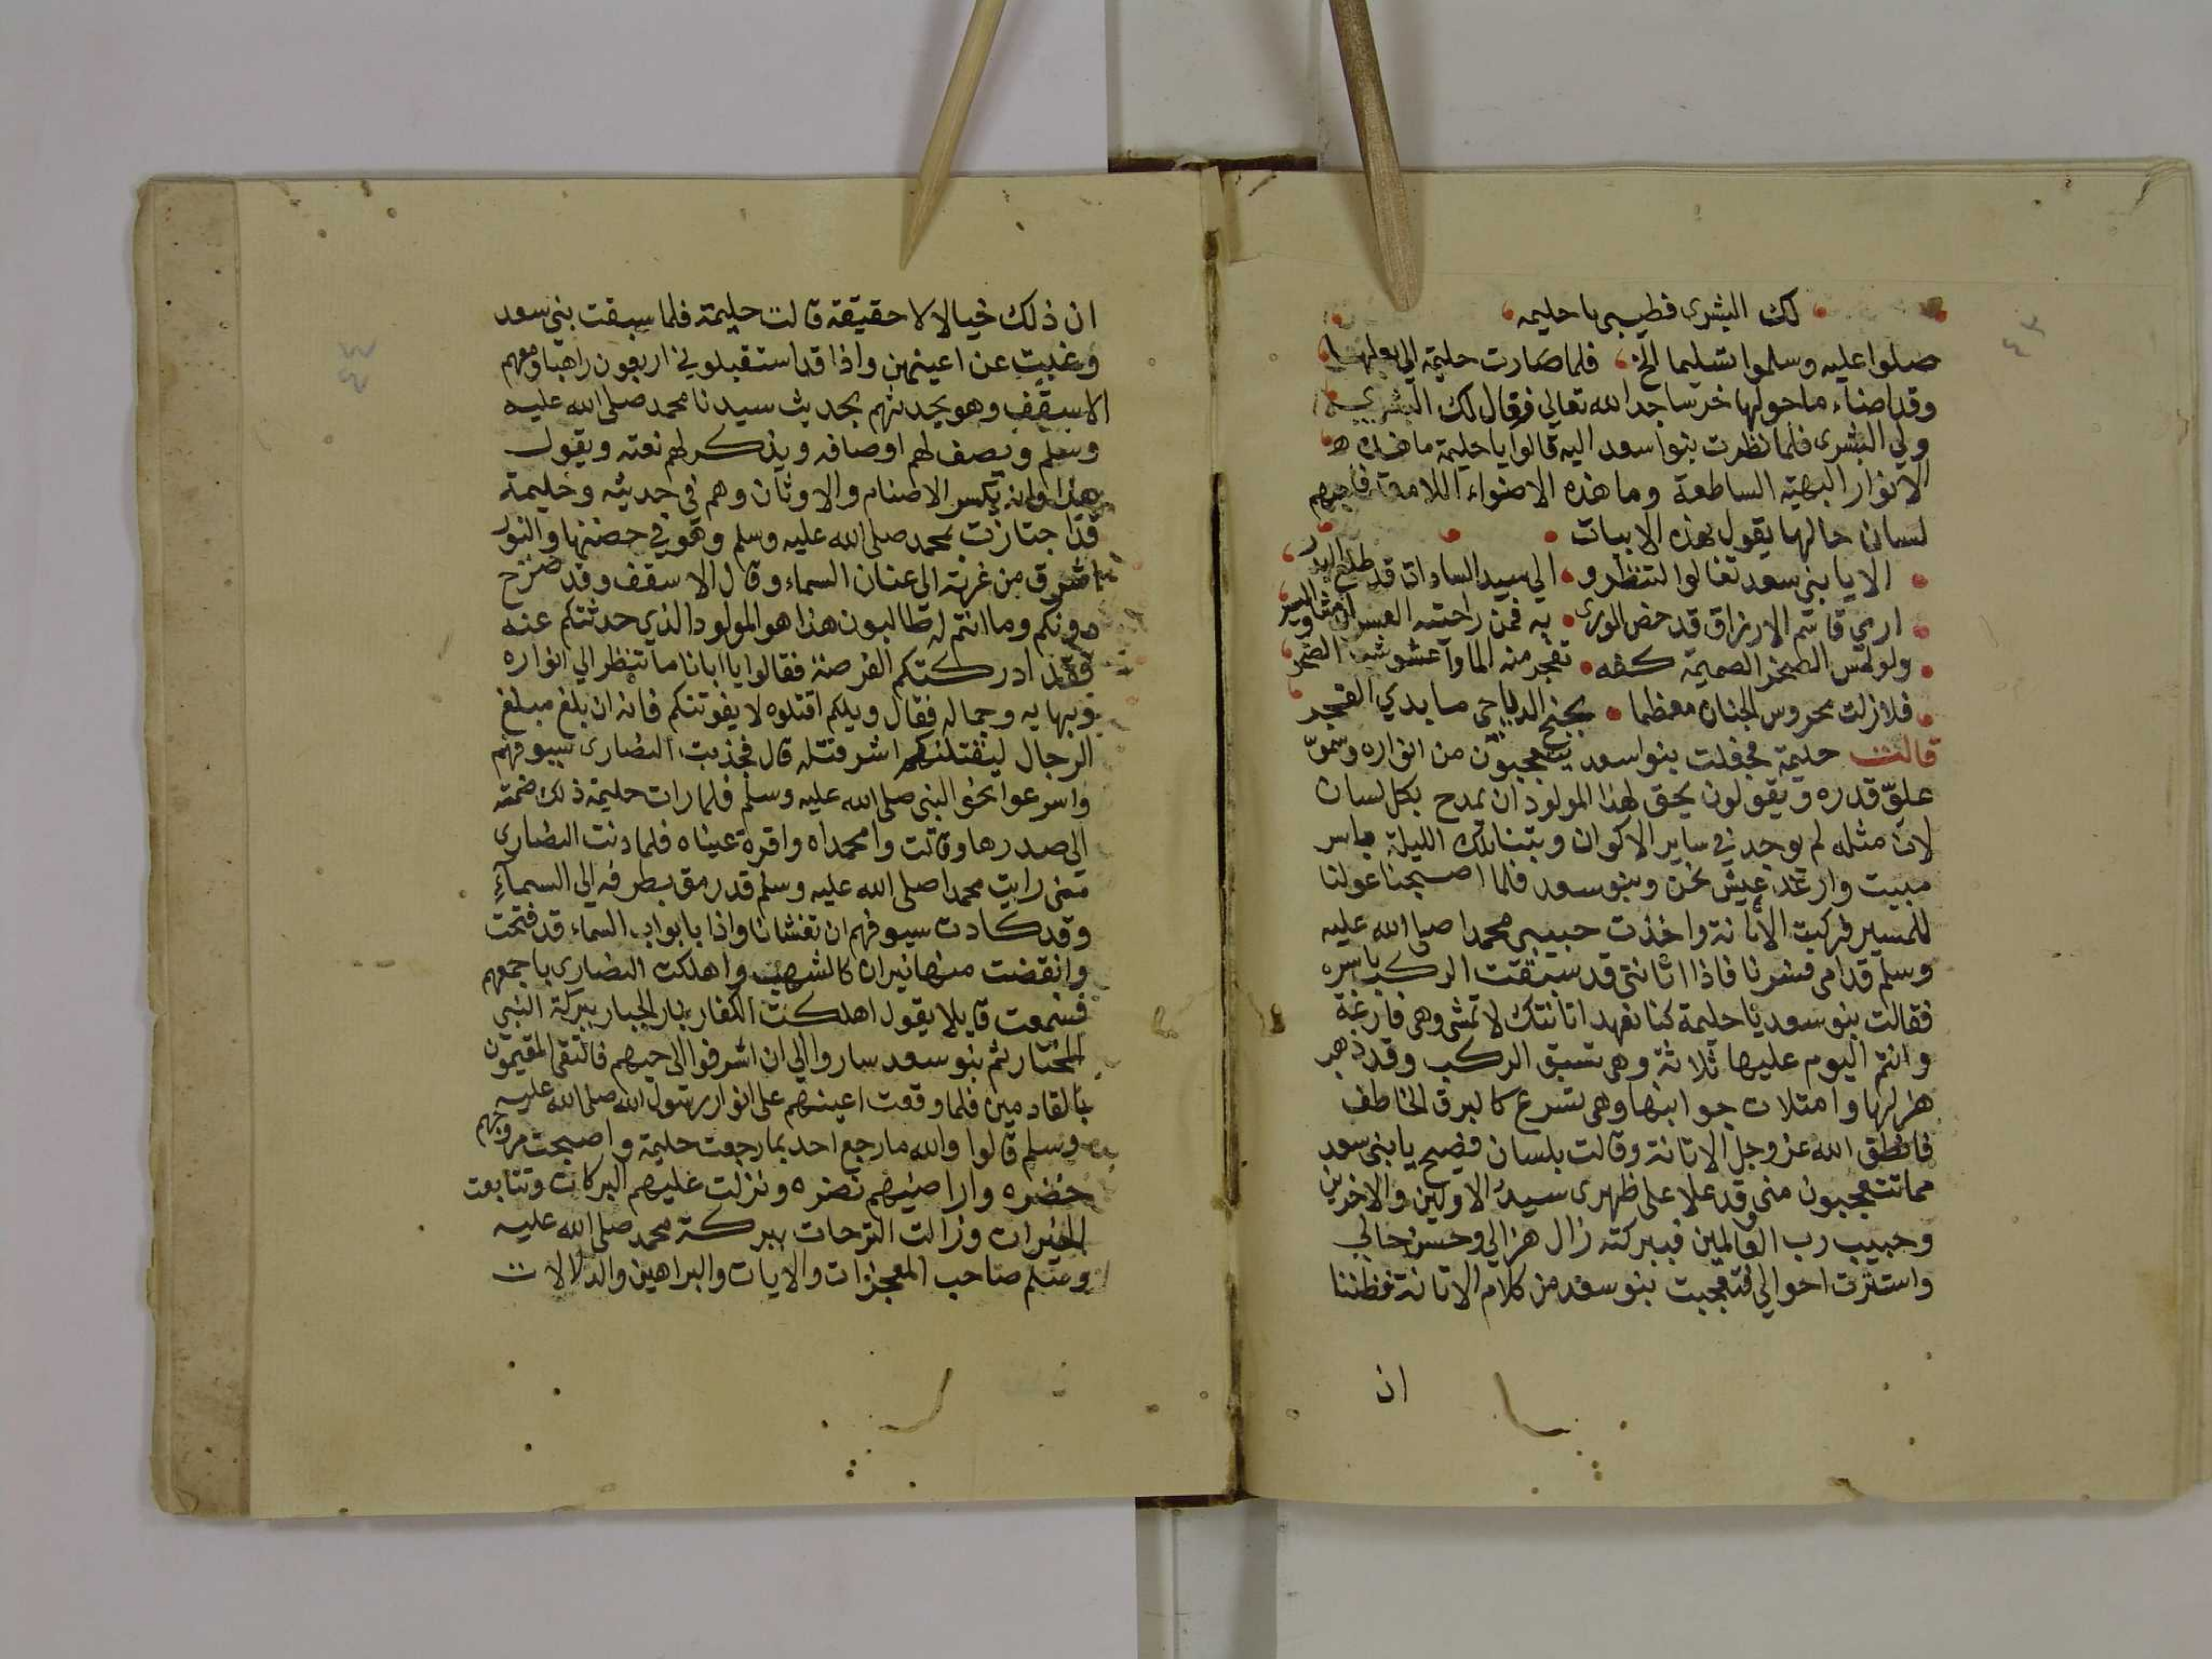 لك البشرى فطيبى يا حليمه
صلوا عليه وسلموا تسليما الخ فلما صارت حليمة الى بعلها
وقد اضاء ما حولها خر ساجدا لله تعالي فقال لك البشري
ولي البشرى فلما نظرت بنوا سعد اليه قالوا يا حليمة ما هذه
الانوار البهيه الساطعة وما هذه الاضواء اللامعة فاجبهم
لسان حالها يقول هذه الابيات
الا يا بنى سعد تعالوا لتنظروا الي سيد السادات قد طلع البدر
اري قاسم الارزاق قد خص الورى به فمن راحتيه العسر واليسر
ولو لمس الصخر الصميمة كفه تفجر منه الما واعشوشب الصخر
فلا زلت محروس الجنان معظما بجنح الدياجي ما بدي الفجر
قالت حليمة فجفلت بنوا سعد يتعجبون من انواره وسموّ
علوّ قدره ويقولون يحق لهذا المولود ان يمدح بكل لسان
لان مثله لم يوجد في ساير الاكوان وبتنا تلك الليلة باسر
مبيت وارغد عيش نحن وبنو سعد فلما اصبحنا عولنا
للمسير فركبت الاتانة واخذت حبيبى محمدا صلى الله عليه
وسلم قدامى فسرنا فاذا اتانتى قد سبقت الركب باسره
فقالت بنو سعد يا حليمة كنا نعهد اتانتك لا تمشى وهى فارغة
وانتم اليوم عليها ثلاثة وهى تسبق الركب وقد ذهب
هزلها وامتلات جوانبها وهى تسرع كالبرق الخاطف
فانطق الله عز وجل الاتانة وقالت بلسان فصيح يا بنى سعد
مما تتعجبون منى وقد علا على ظهرى سيد الاولين والاخرين
وحبيب رب العالمين فببركته زال هزالي وحسن حالي
واستترت احوالي فتعجبت بنو سعد من كلام الاتانة فظننا
ان
ان ذلك خيالا لا حقيقة قالت حليمة فلما سبقت بنى سعد
وغبت عن اعينهن واذا قد استقبلوني اربعون راهبا ومعهم
الاسقف وهو يحدثهم بحديث سيدنا محمد صلى الله عليه
وسلم ويصف لهم اوصافه ويذكر لهم نعته ويقول
هذا اوانه يكسر الاصنام والاوثان وهم فى حديثه وحليمة
قد اجتازت بمحمد صلى الله عليه وسلم وهو في حضنها والنور
اشرق من غرته الى عنان السماء وقال الاسقف وقد صرح
دونكم وما انتم له طالبون هذا هو المولود الذي حدثتكم عنه
فقد ادركتكم الفرصة فقالوا يا ابانا ما تنظر الي انواره
وبهايه وجماله فقال ويلكم اقتلوه لا يفوتنكم فانه ان بلغ مبلغ
الرجال ليقتلنكم اشر قتلة قال فجذبت النصارى سيوفهم
واسرعوا نحو النبى صلى الله عليه وسلم فلما رات حليمة ذلك ضمته
الى صدرها وقالت وا محمداه واقرة عيناه فلما دنت النصارى
منى رايت محمدا صلى الله عليه وسلم قد رمق بطرفه الي السمآء
وقد كادت سيوفهم ان تغشانا واذا بابواب السماء قد فتحت
وانقضت منها نيران كالشهب واهلكت النصارى باجمعهم
فسمعت قايلا يقول اهلكت الكفار بنار الجبار ببركة النبي
المختار ثم بنو سعد ساروا الي ان اشرفوا الى حيهم فالتقى المقيمون
بالقادمين فلما وقعت اعينهم على انوار رسول الله صلى الله عليه
وسلم قالوا والله ما رجع احد بما رجعت حليمة واصبحت مروجهم
خضره واراضيهم نضره ونزلت عليهم البركات وتتابعت
الخيرات وزالت الترحات ببركة محمد صلى الله عليه
وسلم صاحب المعجزات والايات والبراهين والدلالات